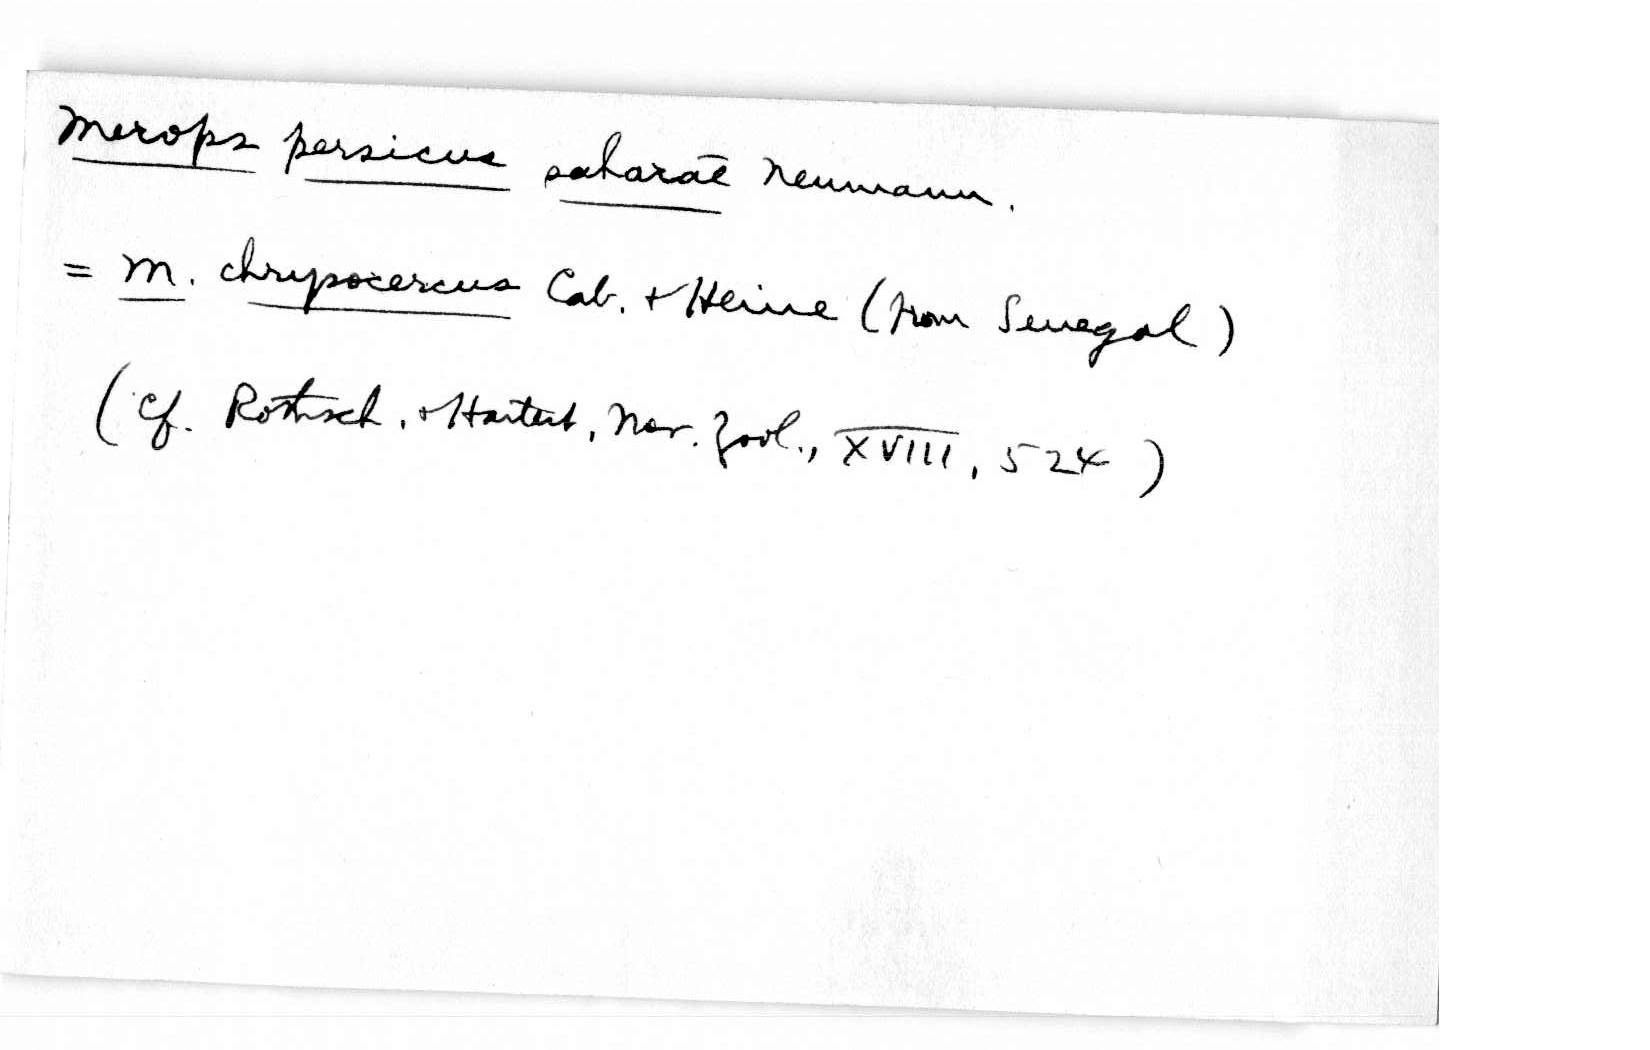 Merops persicus saharae Neumann.
= M. chrysocercus Cab. & Heine (from Senegal)
(Cf. Rothsch. & Hartert, Nov. Zool., XVIII, 524)